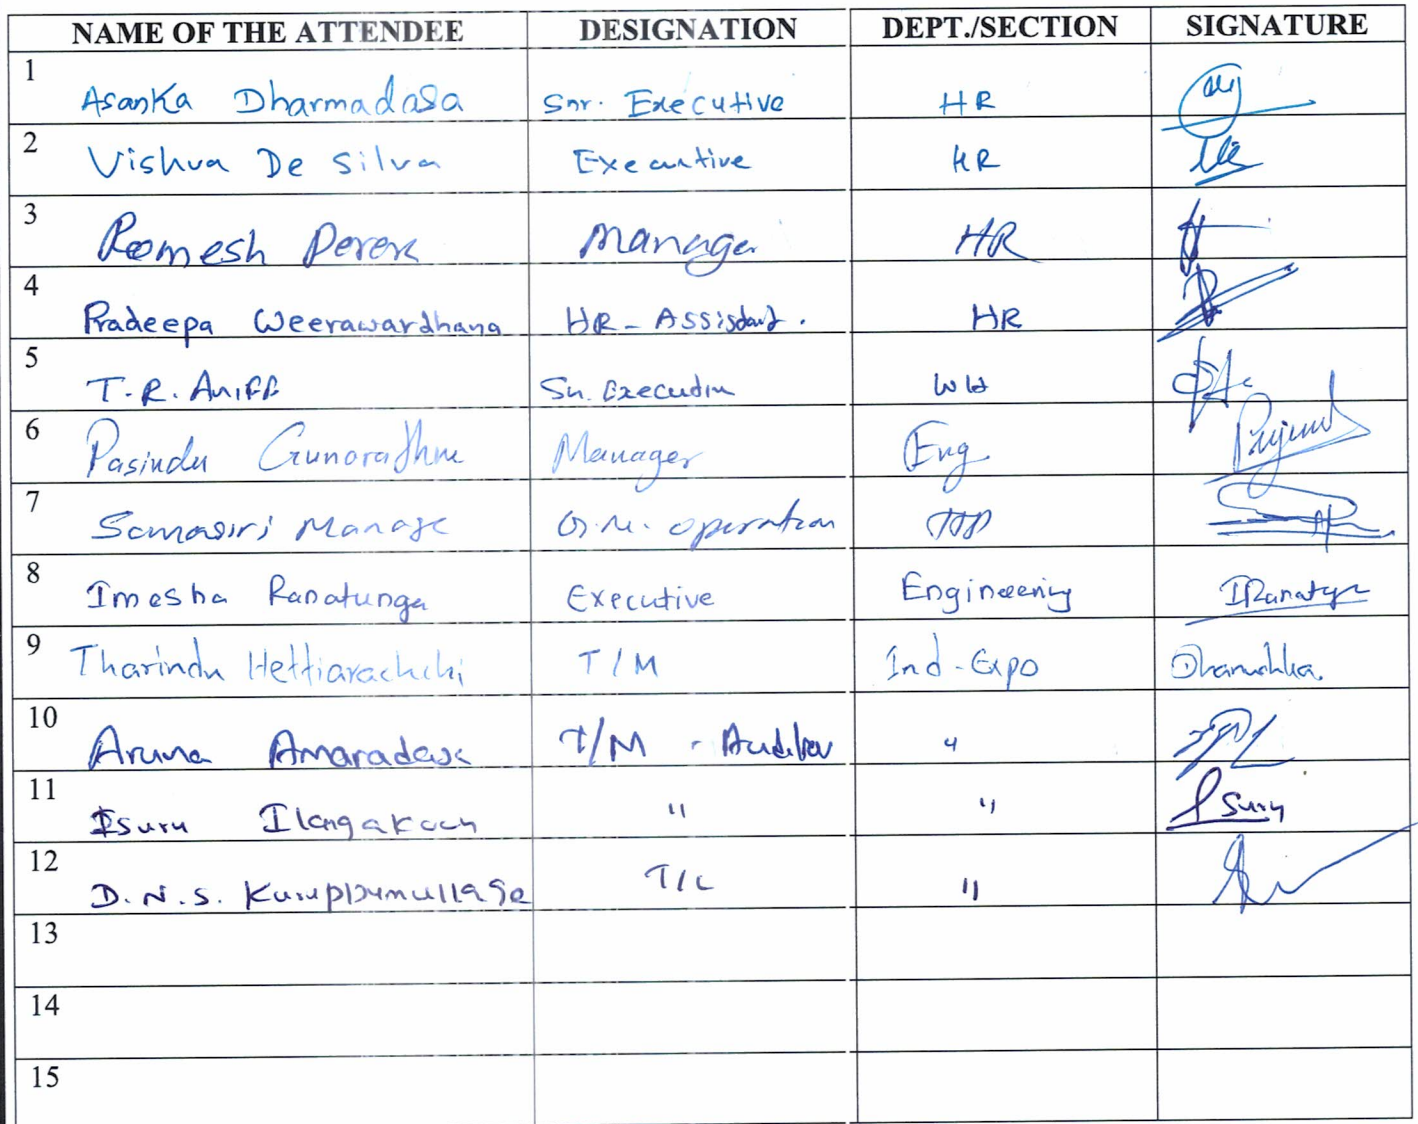 NAME OF THE ATTENDEE DESIGNATION DEPT./SECTION SIGNATURE
1 Asanka Dharmadasa Snr. Executive HR
2 Vishva De Silva Executive HR
3 Romesh Perera Manager HR
4 Pradeepa Weerawardhana HR - Assistant. HR
5 T.R. Aniff Sn. Executive WH
6 Pasindu Gunorathne Manager Eng
7 Samasiri Manage G.M. operation
8 Imesha Ranatunga Executive Engineering IRanatga
9 Tharindu Hettiarachchi T/M Ind-Expo Dhanushka
10 Aruna Amaradasa T/M - "
11 Isuru Ilangakoon " " Isuru
12 D.N.S. Kuruppumullage T/L "
13
14
15